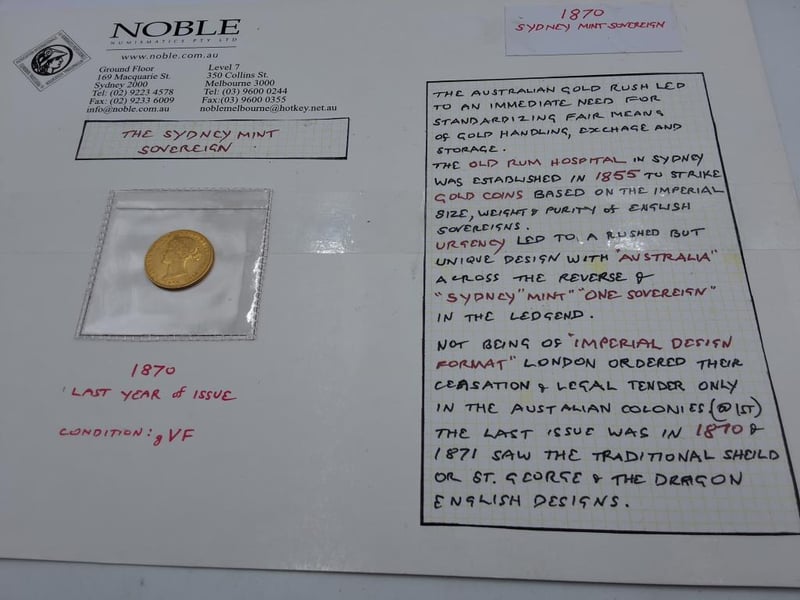 NOBLE
NUMISMATICS PTY LTD
www.noble.com.au
Ground Floor
169 Macquarie St.
Sydney 2000
Tel: (02) 9223 4578
Fax: (02) 9233 6009
info@noble.com.au
Level 7
350 Collins St.
Melbourne 3000
Tel: (03) 9600 0244
Fax:(03) 9600 0355
noblemelbourne@hotkey.net.au
THE SYDNEY MINT
SOVEREIGN
1870
LAST YEAR of ISSUE
CONDITION: gVF
1870
SYDNEY MINT SOVEREIGN
THE AUSTRALIAN GOLD RUSH LED
TO AN IMMEDIATE NEED FOR
STANDARDIZING FAIR MEANS
OF GOLD HANDLING, EXCHAGE AND
STORAGE.
THE OLD RUM HOSPITAL IN SYDNEY
WAS ESTABLISHED IN 1855 TO STRIKE
GOLD COINS BASED ON THE IMPERIAL
SIZE, WEIGHT & PURITY of ENGLISH
SOVEREIGNS.
URGENCY LED TO A RUSHED BUT
UNIQUE DESIGN WITH "AUSTRALIA"
ACROSS THE REVERSE &
"SYDNEY" MINT" "ONE SOVEREIGN"
IN THE LEDGEND.
NOT BEING OF "IMPERIAL DESIGN
FORMAT" LONDON ORDERED THEIR
CEASATION & LEGAL TENDER ONLY
IN THE AUSTALIAN COLONIES (@ 1ST)
THE LAST ISSUE WAS IN 1870 &
1871 SAW THE TRADITIONAL SHEILD
OR ST. GEORGE & THE DRAGON
ENGLISH DESIGNS.